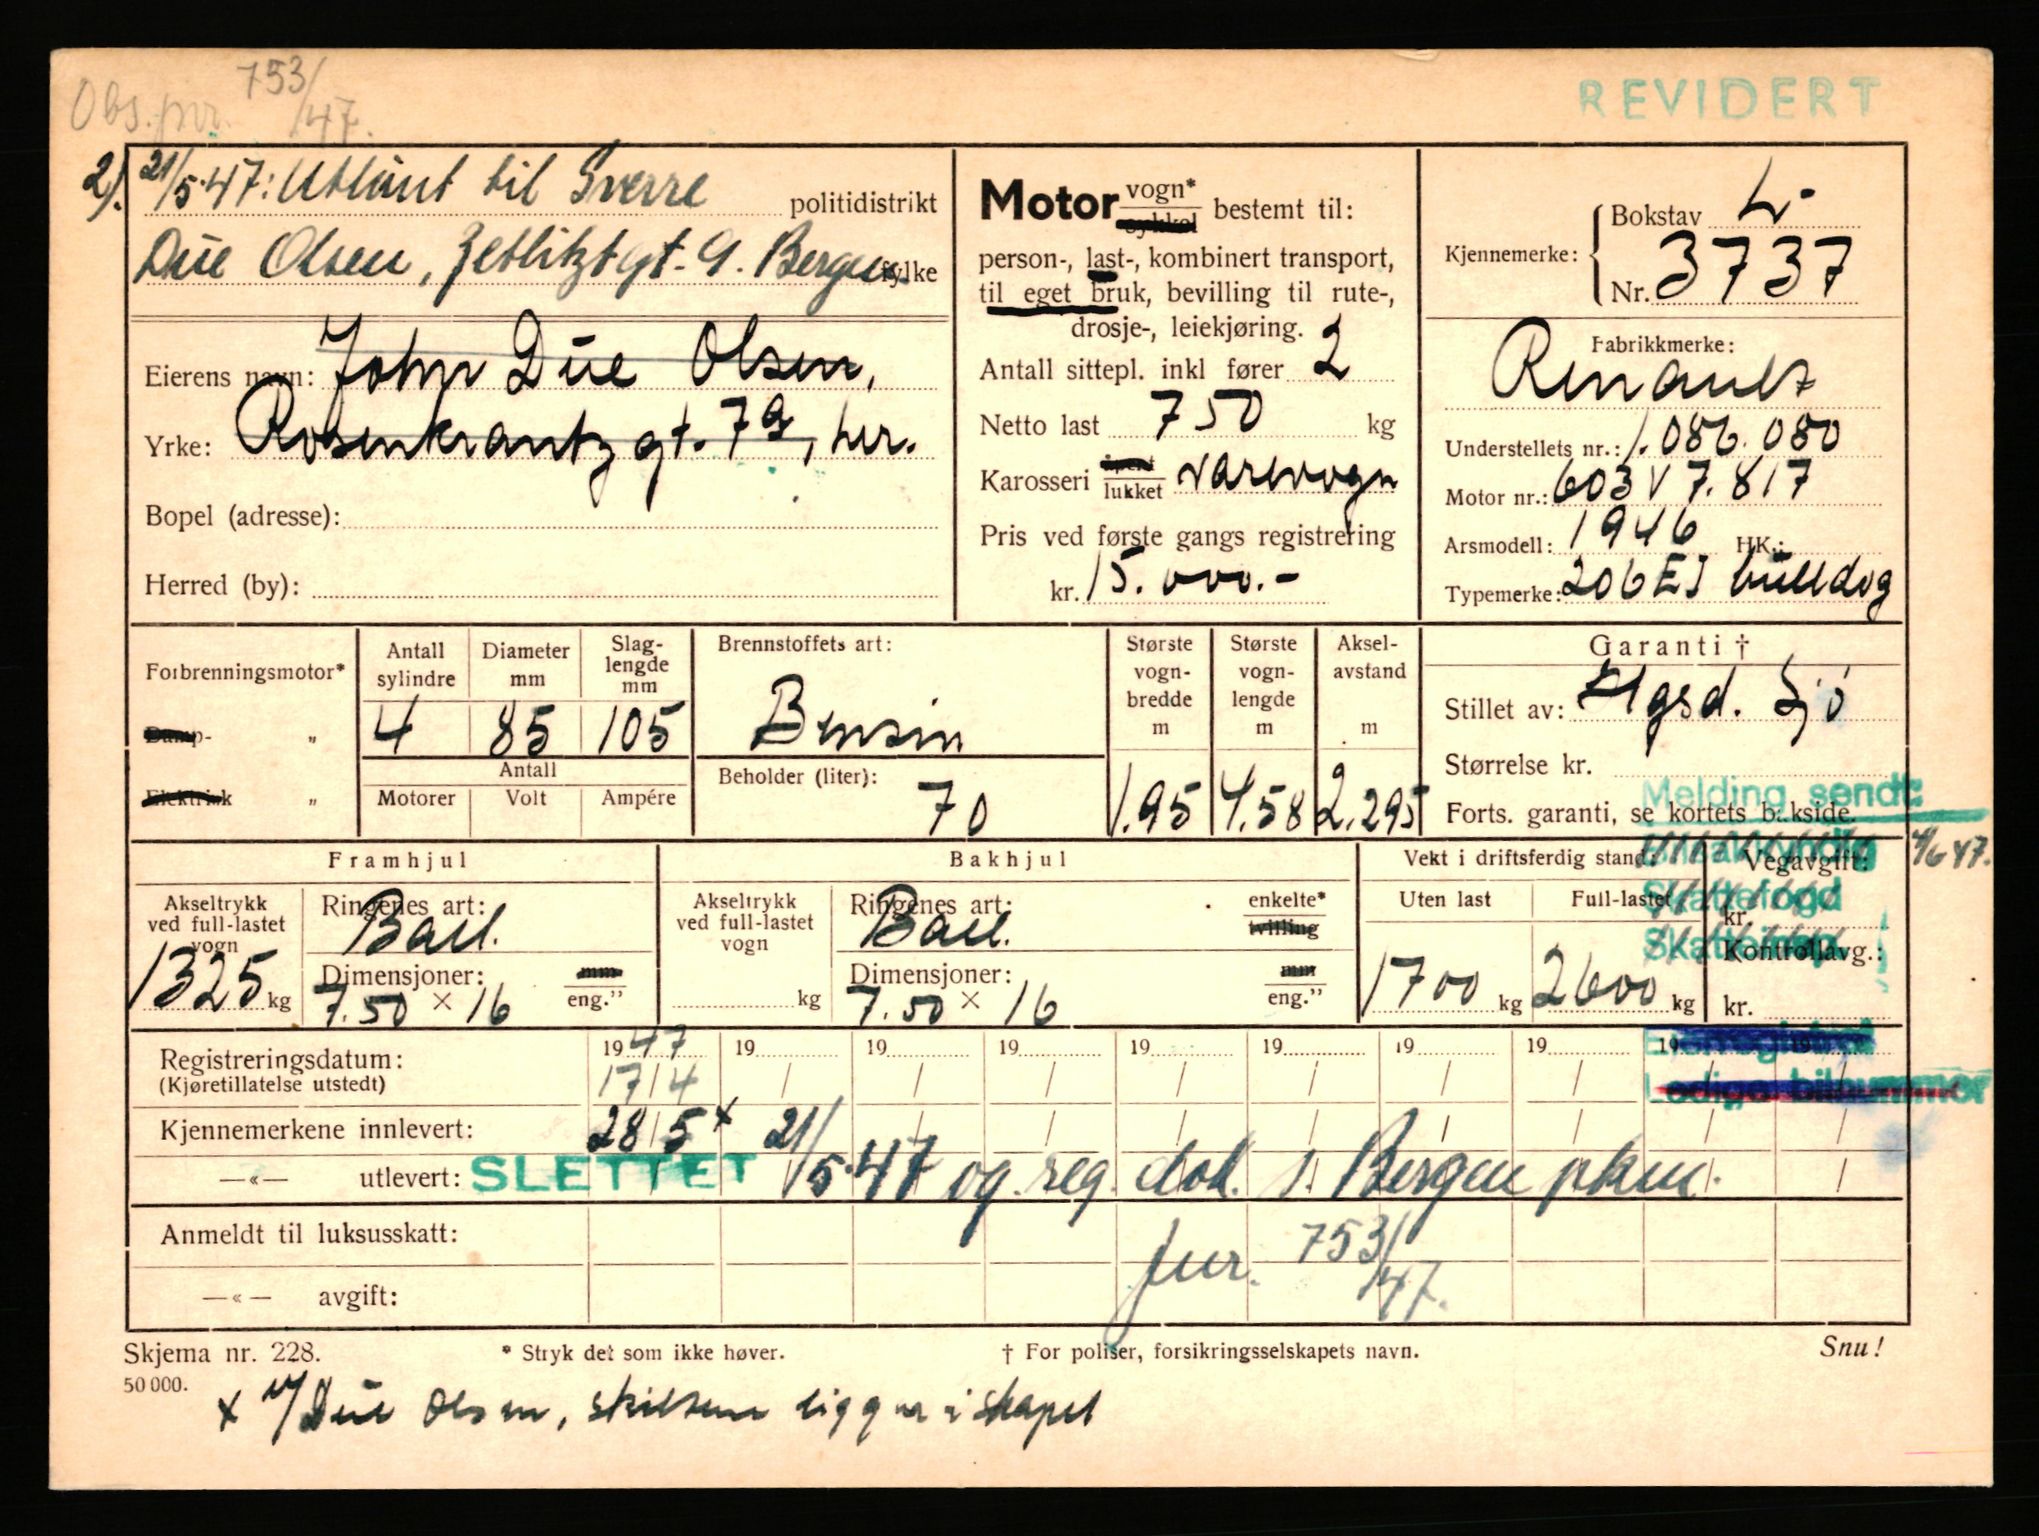 Obs. jnr. 753/47.
REVIDERT
2). 21/5.47: Utlånt til Sverre politidistrikt
Due Olsen, Zetlitzt gt. 9. Bergen fylke
Eierens navn: John Due Olsen,
Yrke: Rosenkrantz gt. 79, her.
Bopel (adresse):
Herred (by):
Motor vogn* sykkel bestemt til:
person-, last-, kombinert transport,
til eget bruk, bevilling til rute-,
drosje-, leiekjøring.
Antall sittepl. inkl fører 2
Netto last 750 kg
Karosseri åpent lukket varevogn
Pris ved første gangs registrering
kr. 15.000.-
Kjennemerke: Bokstav L-
Nr. 3737
Fabrikkmerke:
Renault
Understellets nr.: 1.086.080
Motor nr.: 603 V 7.817
Arsmodell: 1946 HK.:
Typemerke: 206 E1 bulldog
Forbrenningsmotor*
Damp- „
Elektrisk „
Antall sylindre 4
Diameter mm 85
Slag-lengde mm 105
Antall
Motorer Volt Ampére
Brennstoffets art:
Bensin
Beholder (liter):
70
Største vogn-bredde m 1.95
Største vogn-lengde m 4.58
Aksel-avstand m 2.295
Garanti †
Stillet av: Hgsd. Sjø
Størrelse kr.
Forts. garanti, se kortets bakside.
Melding sendt:
4/6 47.
Skattefogd
Framhjul
Akseltrykk ved full-lastet vogn
1325 kg
Ringenes art:
Ball.
Dimensjoner: mm
7.50 × 16 eng.”
Bakhjul
Akseltrykk ved full-lastet vogn
kg
Ringenes art: enkelte*
Ball. tvilling
Dimensjoner: mm
7.50 × 16 eng.”
Vekt i driftsferdig stand:
Uten last Full-lastet
1700 kg 2600 kg
Vegavgift:
kr.
Kontrollavg.:
kr.
Registreringsdatum: 1947 19 19 19 19 19 19 19 19 19
(Kjøretillatelse utstedt) 17/4
Eierregistret
Ledige bilnummer
Kjennemerkene innlevert: 28/5 x
—«— utlevert: SLETTET 21/5.47 og reg. dok. s. Bergen pkm.
Anmeldt til luksusskatt: jnr. 753/47.
—«— avgift:
Skjema nr. 228. * Stryk det som ikke høver. † For poliser, forsikringsselskapets navn. Snu!
50 000.
x v/Due Olsen, skiltene ligger i skapet